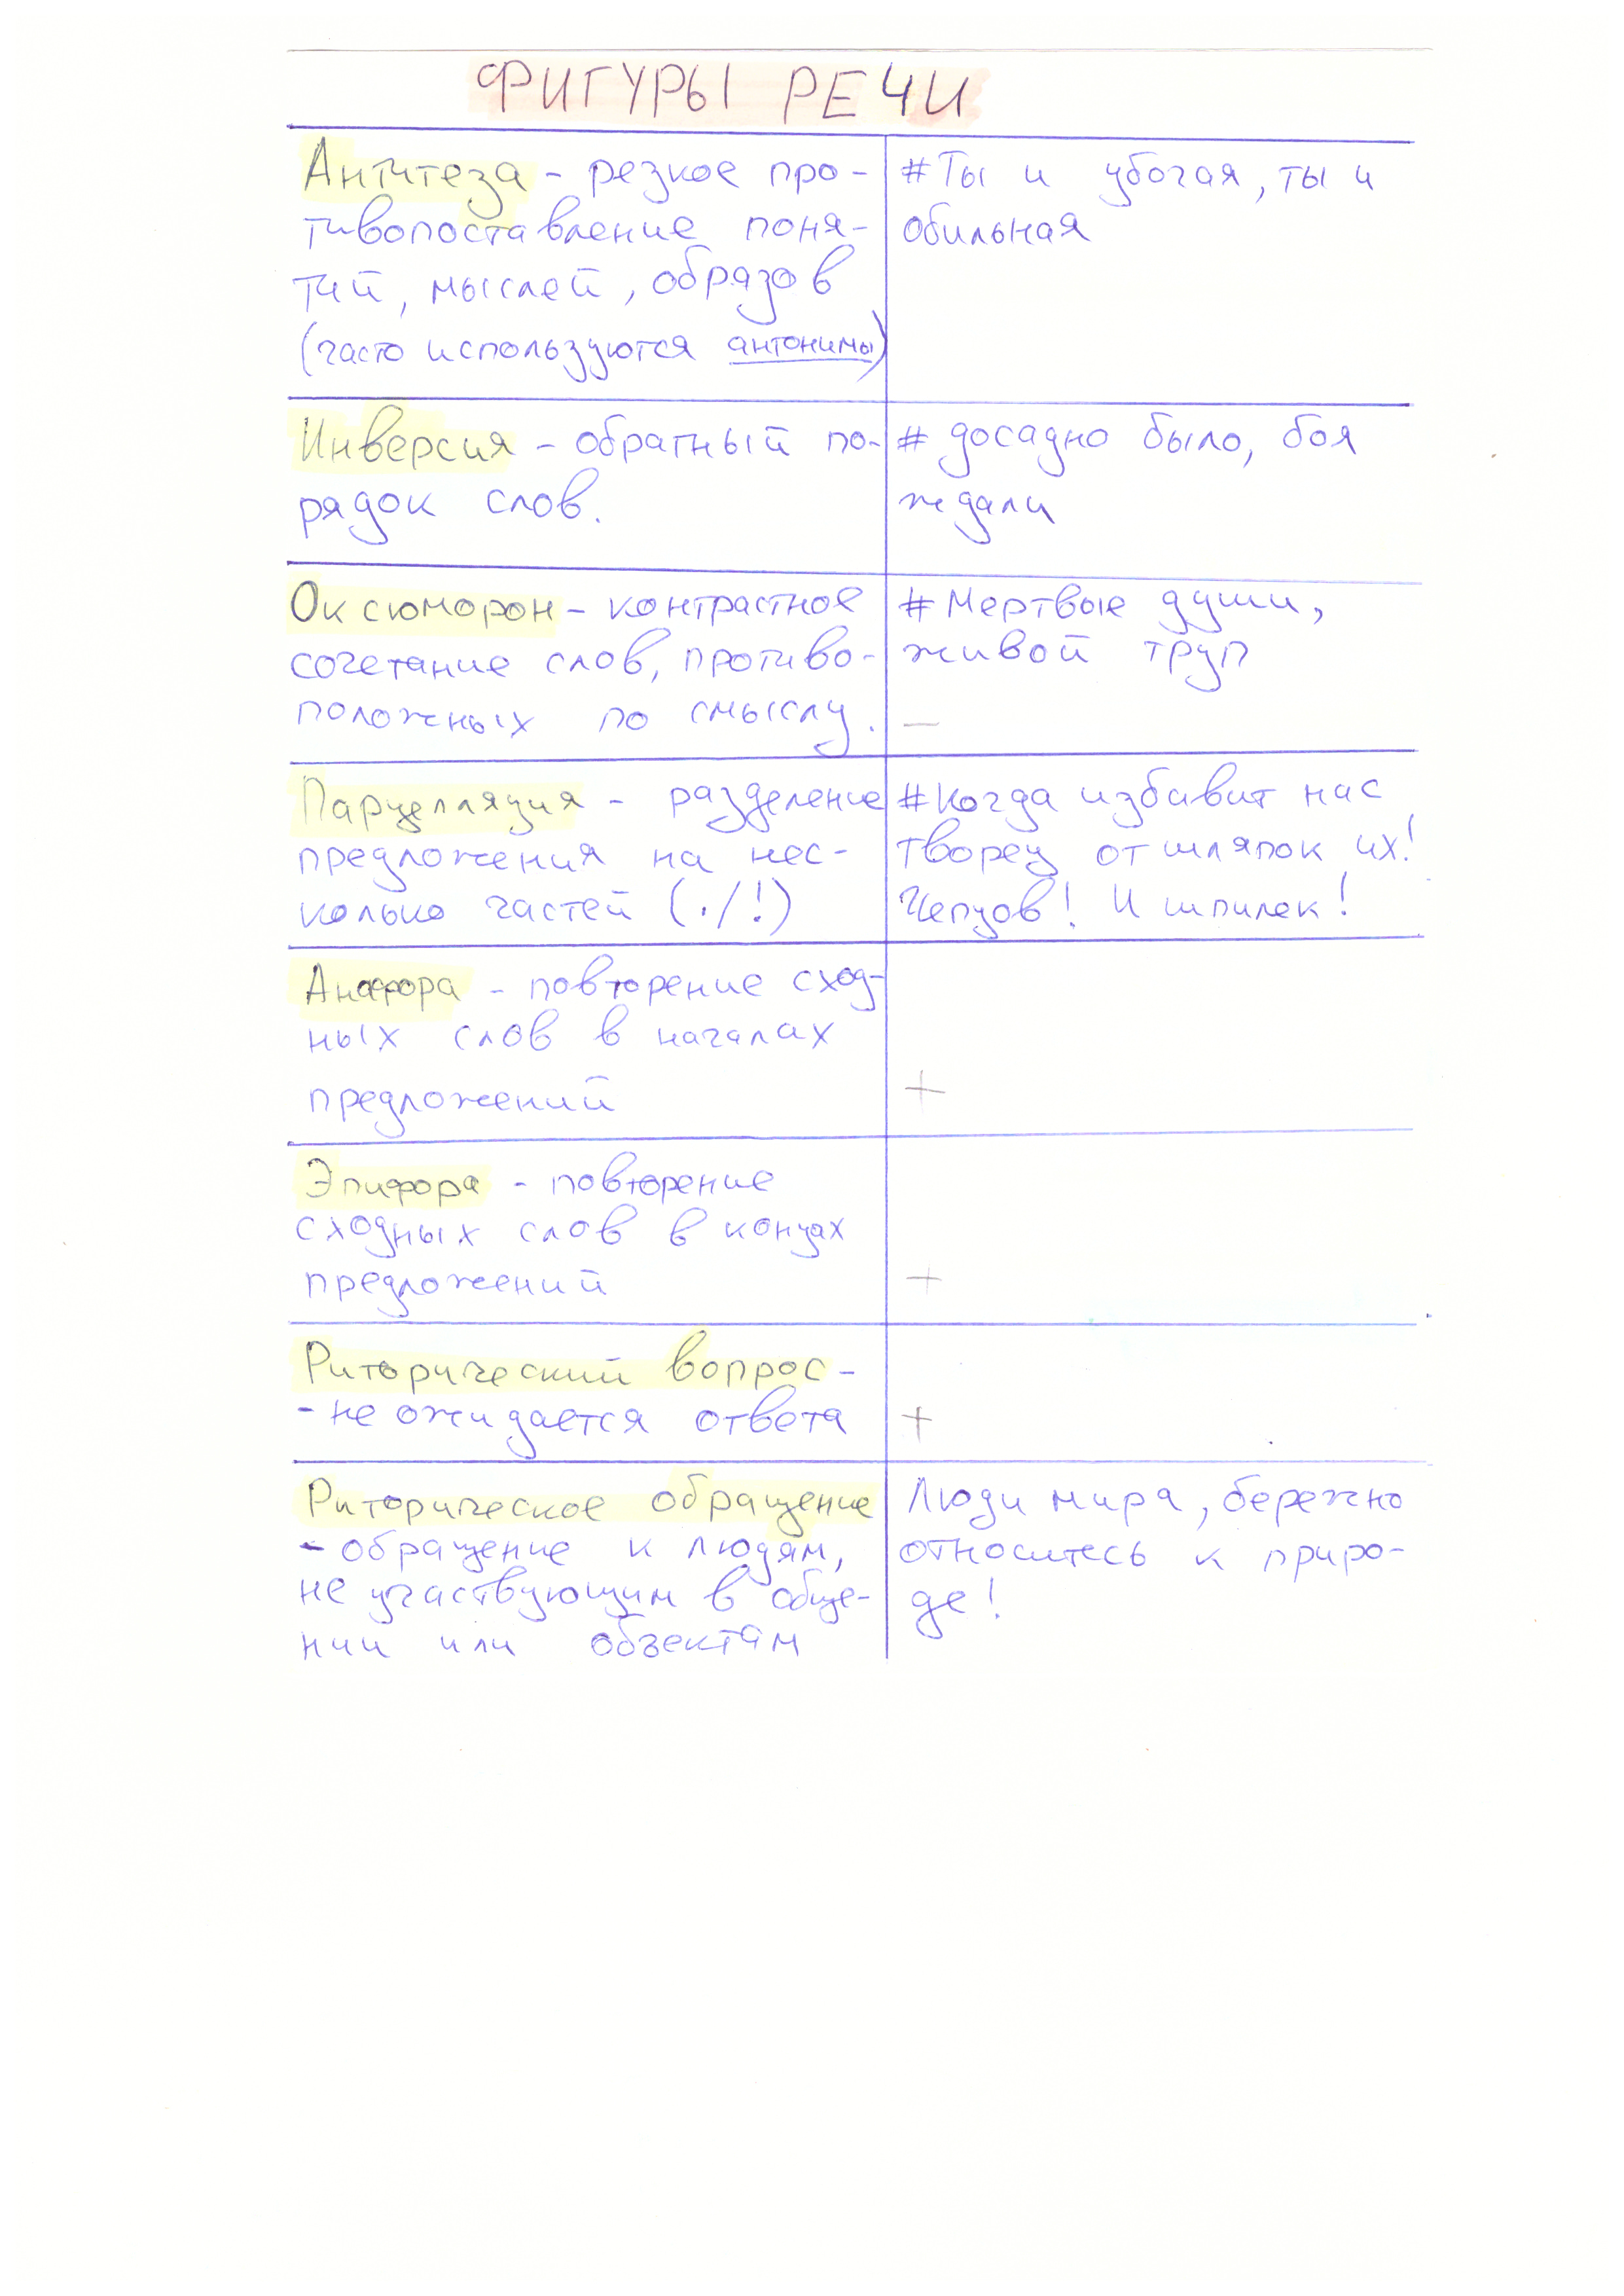 ФИГУРЫ РЕЧИ
Антитеза - резкое про-
тивопоставление поня-
тий, мыслей, образов
(часто используются антонимы)
# Ты и убогая, ты и
обильная
Инверсия - обратный по-
рядок слов.
# досадно было, боя
ждали
Оксюморон - контрастное
сочетание слов, противо-
положных по смыслу.
# Мертвые души,
живой труп
–
Парцелляция - разделение
предложения на нес-
колько частей (./!)
# Когда избавит нас
творец от шляпок их!
Чепцов! И шпилек!
Анафора - повторение сход-
ных слов в началах
предложений
+
Эпифора - повторение
сходных слов в концах
предложений
+
Риторический вопрос -
- не ожидается ответа
+
Риторическое обращение
- обращение к людям,
не участвующим в обще-
нии или обзектам
Люди мира, бережно
относитесь к приро-
де!